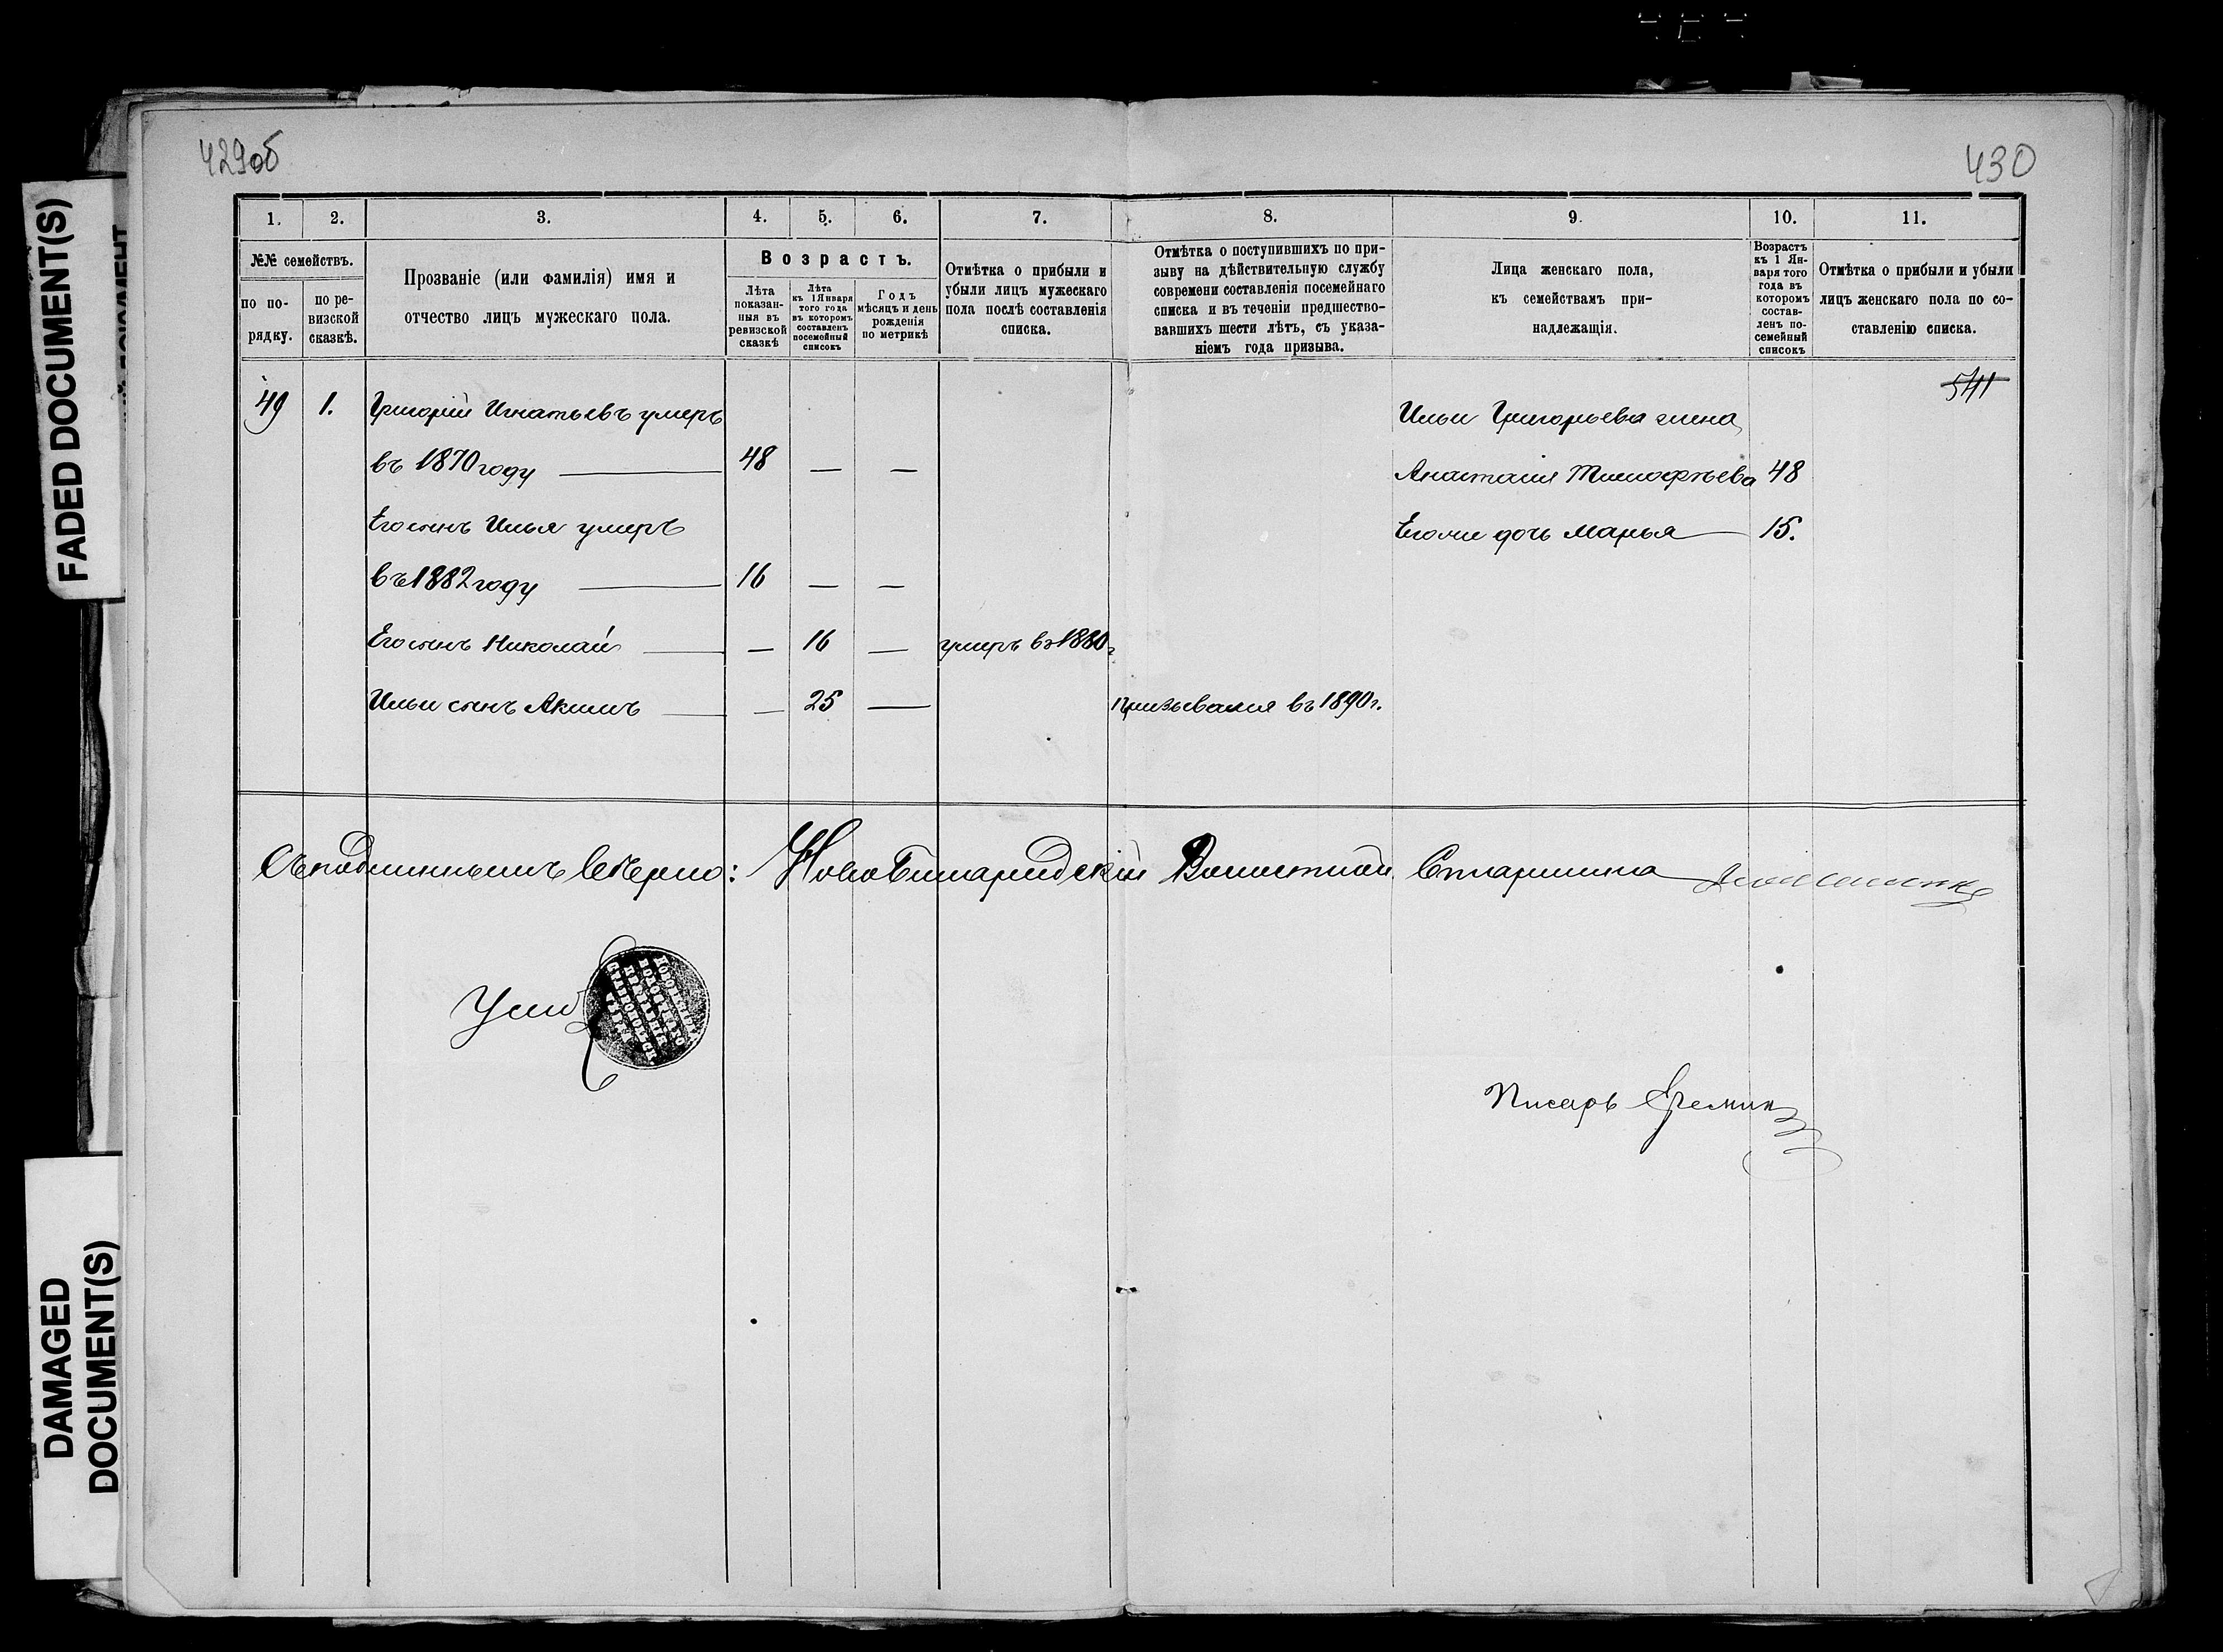 FADED DOCUMENT(S)
DAMAGED
DOCUMENT(S)
429об
430
1.
2.
3.
4.
5.
6.
7.
8.
9.
10.
11.
№№ семействъ.
по по-
рядку.
по ре-
визской
сказкѣ.
Прозваніе (или фамилія) имя и
отчество лицъ мужескаго пола.
Возрастъ.
Лѣта
показан-
ныя въ
ревизской
сказкѣ
Лѣта
къ 1 Января
того года
въ которомъ
составленъ
посемейный
списокъ
Годъ
мѣсяцъ и день
рожденія
по метрикѣ
Отмѣтка о прибыли и
убыли лицъ мужескаго
пола послѣ составленія
списка.
Отмѣтка о поступившихъ по при-
зыву на дѣйствительную службу
современи составленія посемейнаго
списка и въ теченіи предшество-
вавшихъ шести лѣтъ, съ указа-
ніемъ года призыва.
Лица женскаго пола,
къ семействамъ при-
надлежащія.
Возрастъ
къ 1 Ян-
варя того
года въ
которомъ
состав-
ленъ по-
семейный
списокъ
Отмѣтка о прибыли и убыли
лицъ женскаго пола по со-
ставленію списка.
49 1. Григорій Игнатьевъ умеръ
въ 1870 году — 48 — —
Его сынъ Илья умеръ
въ 1882 году — 16 — —
Его сынъ Николай — — 16 — умеръ въ 1880 г
Ильи сынъ Акимъ — — 25 — призывался въ 1890 г.
Ильи Григорьева жена
Анастасия Тимофѣева 48
Его же дочь Марья — 15.
Съ подлиннымъ верно: Ново Бинарадскій Волостной Старшина
Писарь Еремин